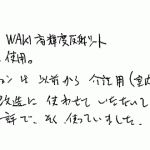 WAKI 高輝度反射シート
使用。
ンは以前から介護用(室内
改造に使わせていただいて
評で、よく使っていました。